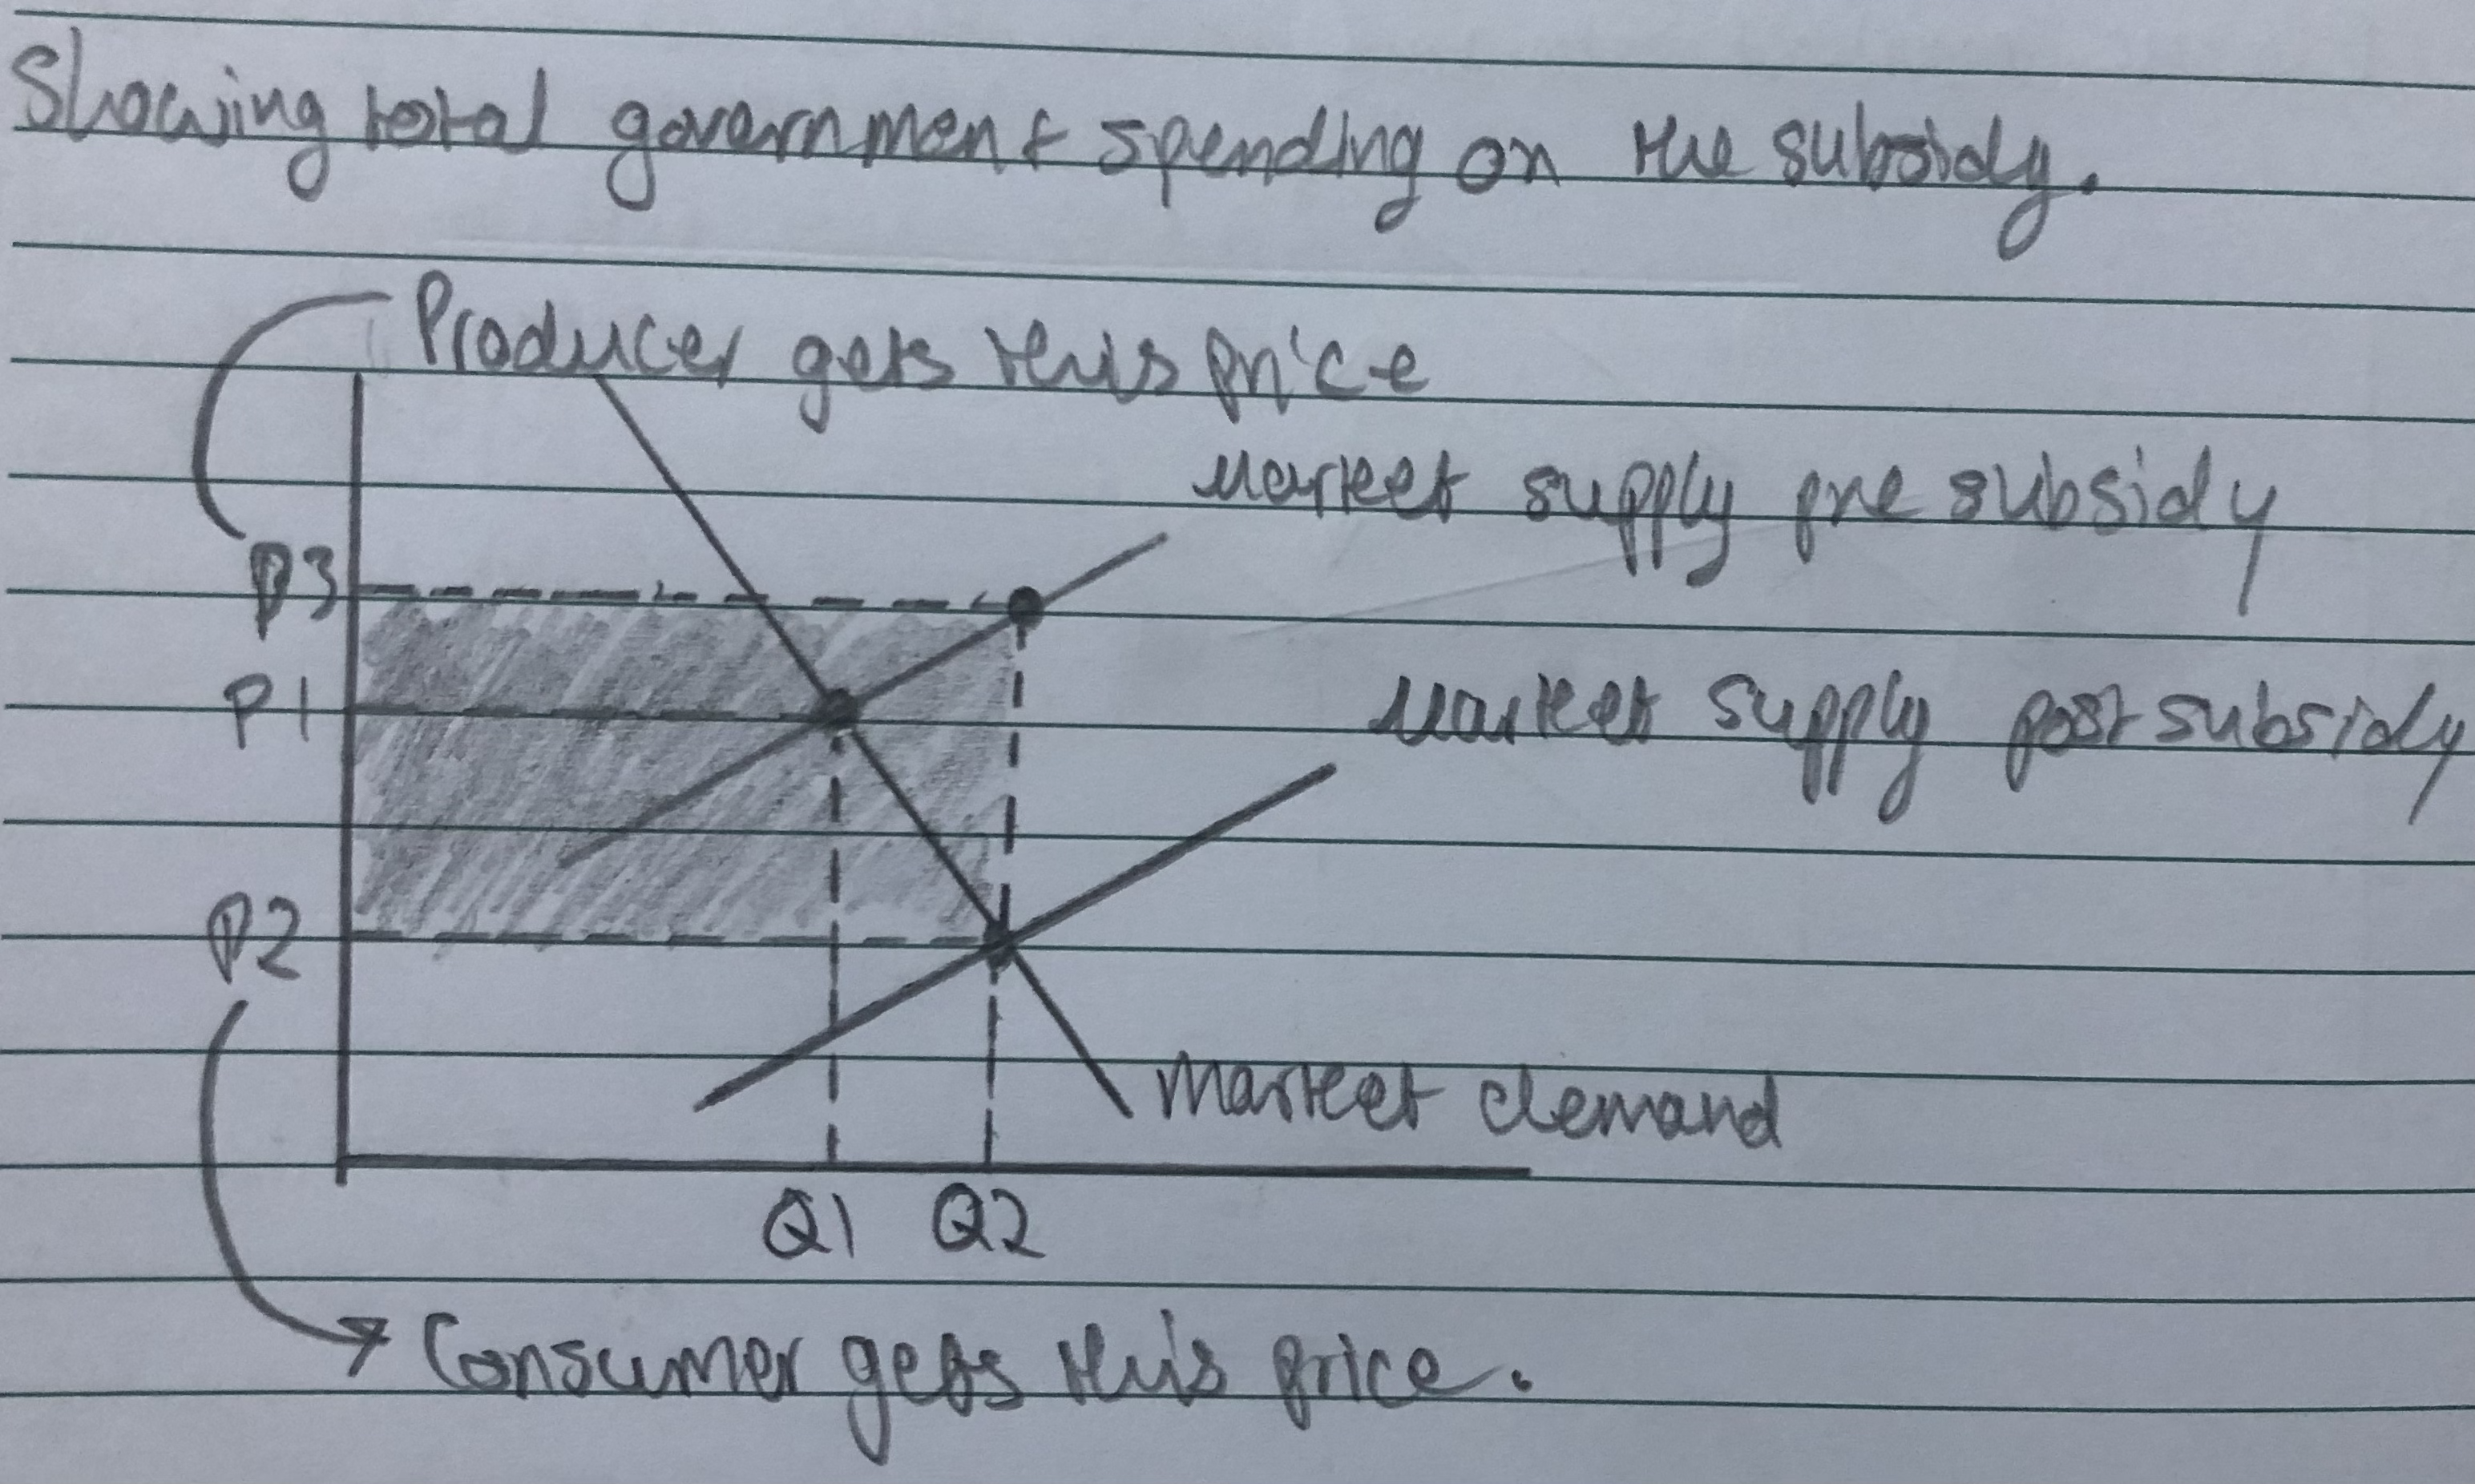 Showing total government spending on the subsidy.
Producer gets this price
Market supply pre subsidy
P3
P1
Market supply post subsidy
P2
Market demand
Q1 Q2
Consumer gets this price.